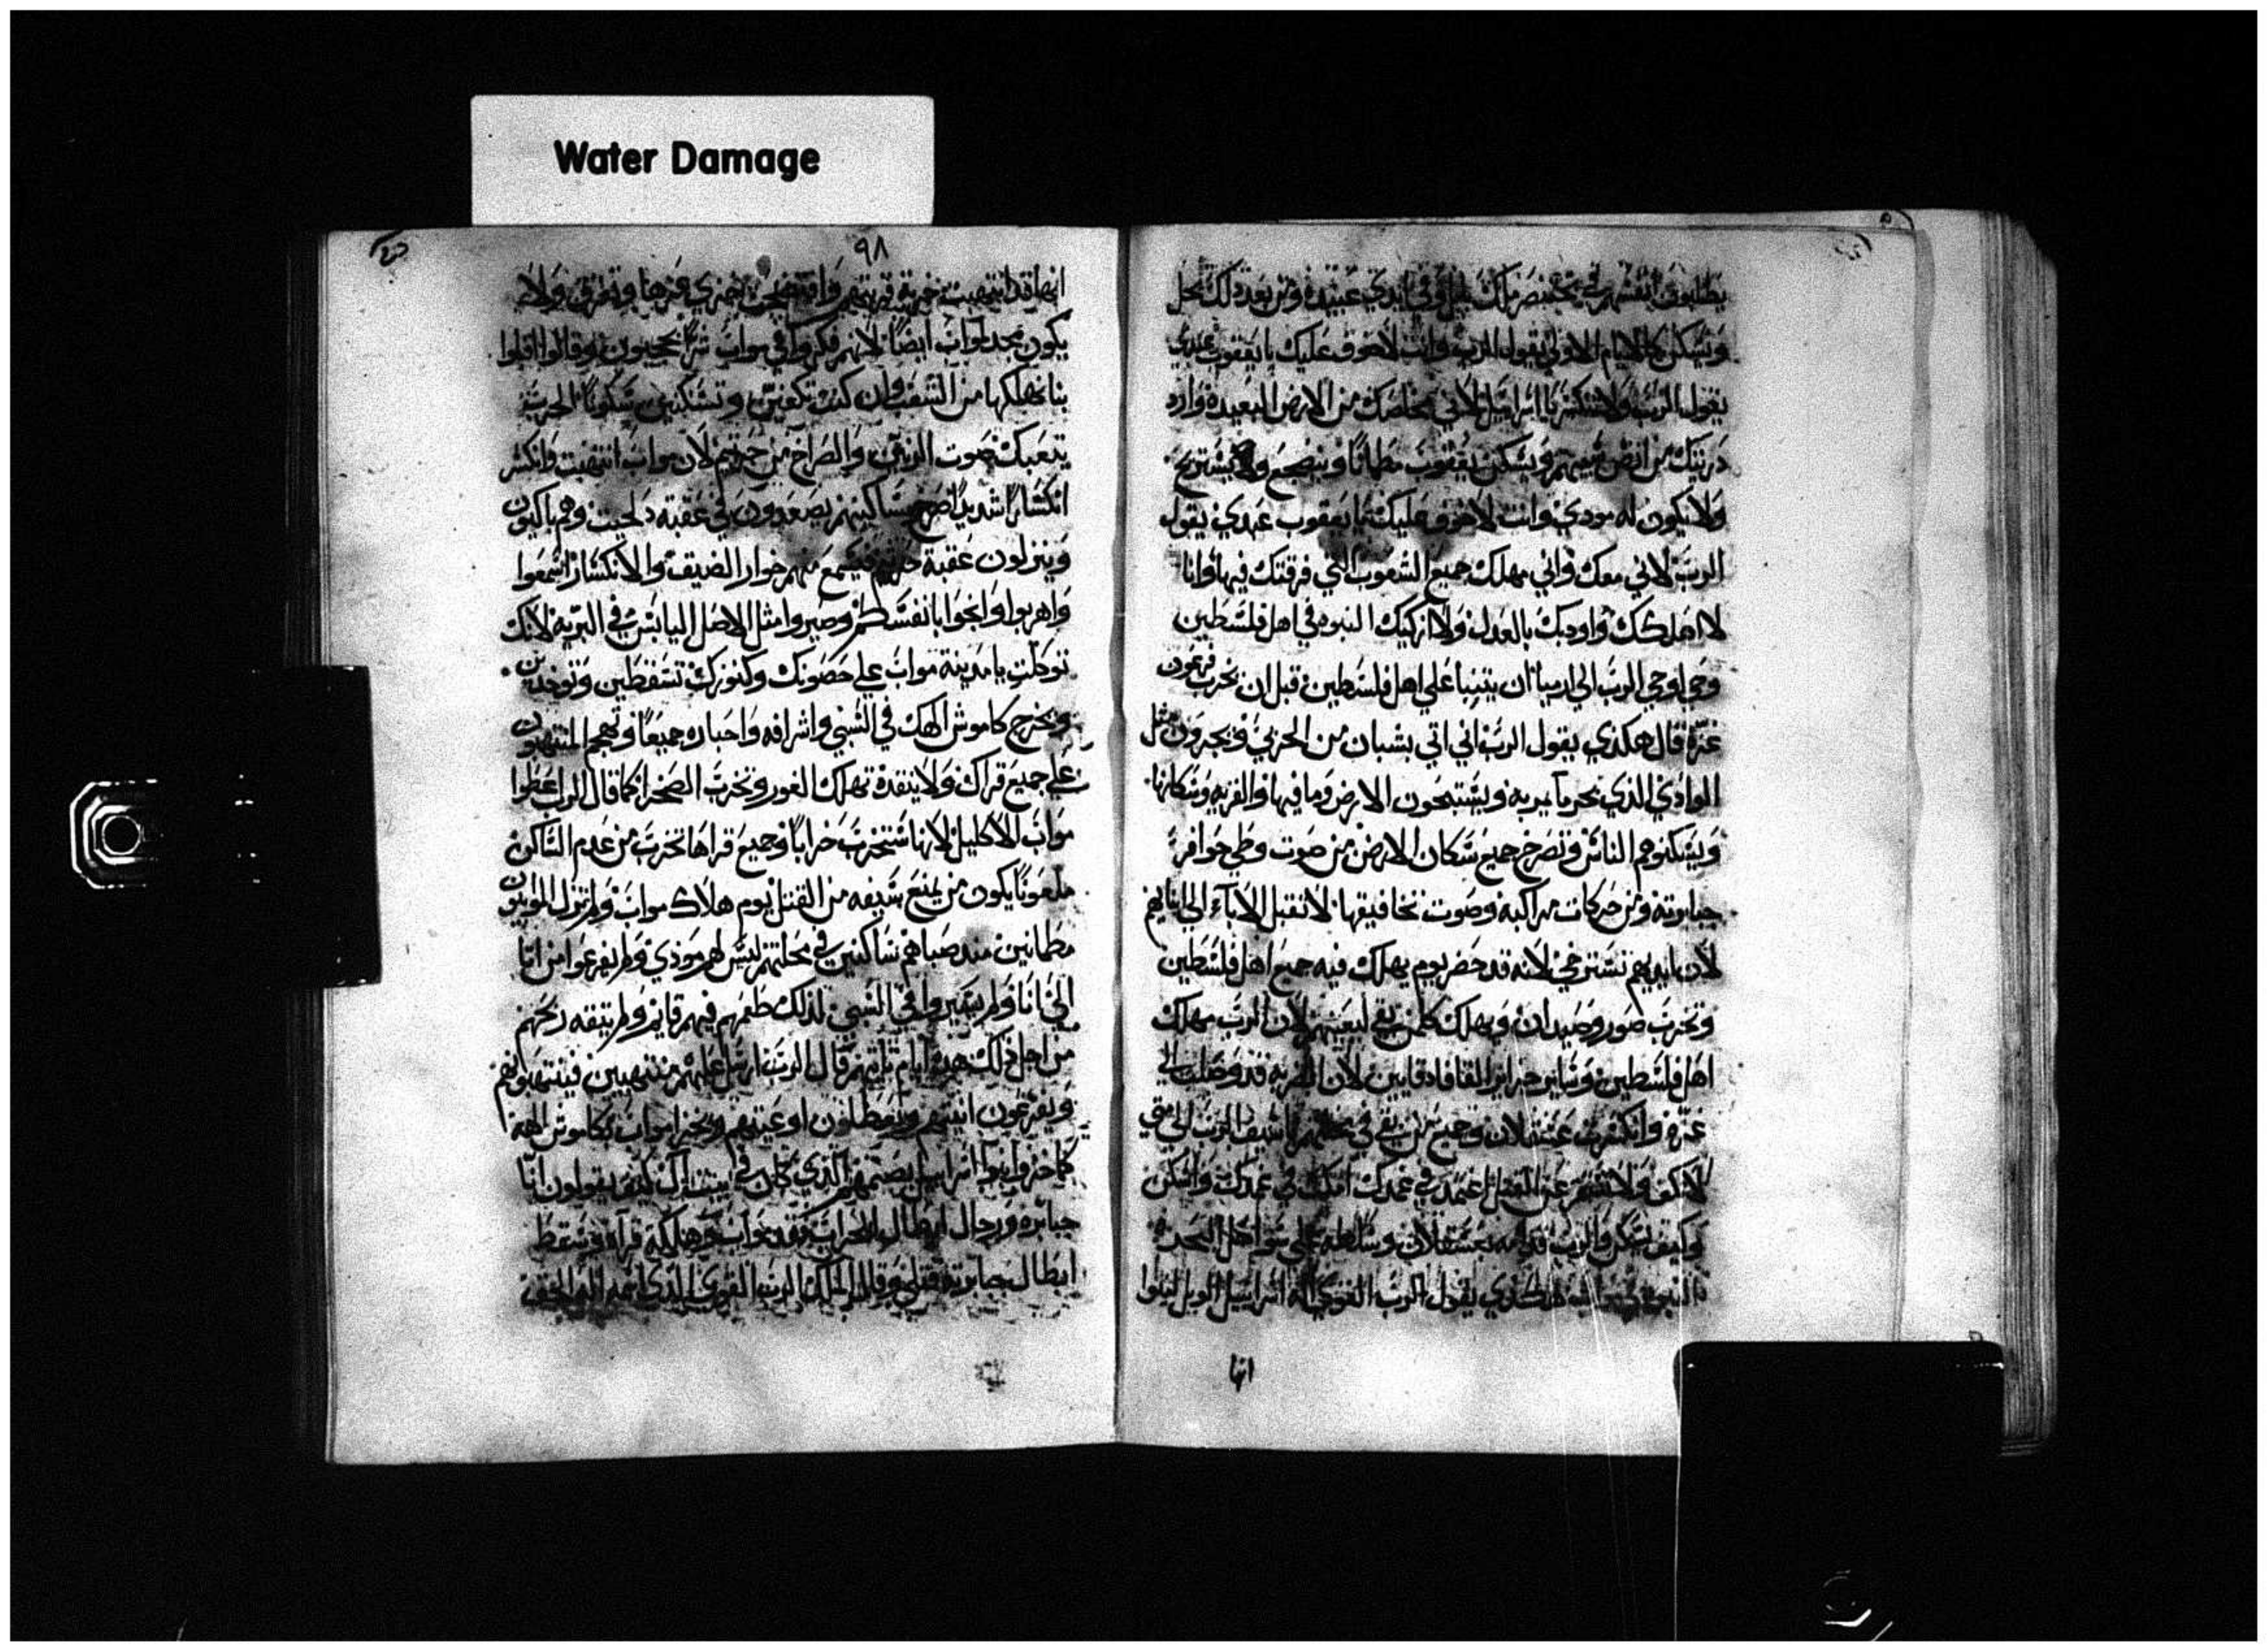 Water Damage
يطلبون انفسهم في بختنصر ملك بابل وفي ايدي عبيده ومن بعد ذلك تحل
وتسكن كالايام الاولي يقول الرب وانت لا خوف عليك يا يعقوب عبدي
يقول الرب ولا تنكسر يا اسراييل لاني مخلصك من الارض البعيدة وارد
ذريتك من ارض سبيهم ويسكن يعقوب مطمانا وينضجع ويستريح
ولا يكون له موذي وانت لا خوف عليك يا يعقوب عبدي يقول
الرب لاني معك واني مهلك جميع الشعوب التي فرقتك فيها وانا
لا اهلكك واودبك بالعدل ولا ازكيك النبوه في اهل فلسطين
وحي اوحي الرب الي ارميا ان يتنبا علي اهل فلسطين قبل ان يخرب فرعون
غزة قال هكذي يقول الرب اني اتي بشبان من الحربي ويجرون مثل
الوادي الذي يجر ما يمر به ويستبحون الارض وما فيها والقريه وسكانها
ويسكنوهم الناس وتصرخ جميع سكان الارض من صوت وطي حوافر
جبابرته ومن حركات مراكبه وصوت تخافيقها لا تقبل الاباء الي ابنايهم
لان ايديهم تسترخي لانه قد حضر يوم يهلك فيه جميع اهل فلسطين
وتخرب صور وصيدان ويهلك كلمن بقي لبغيتهم لان الرب مهلك
اهل فلسطين وساير جزاير القافادقايين لان القريه قد وصلت الي
غزه وانكسرت عسقلان وجميع من بقي في يا سيف الرب الي متي
لا تكف ولا تستقر عن القتل اغمد في غمدك امكث في غمدك واسكن
وكيف تسكن والرب قد امره بعسقلان وسلطه علي سواحل البحر
هكذي يقول الرب القوي اله اسراييل الويل لنبوا
انها
٩٨
انها قد انتهبت خربة قريتهم وافتضحت
يكون مجد مواب ايضا لانهم فكروا في مواب شرا وقالوا اقبلوا
بنا نهلكها من الشعب وان كنت تكفين وتسكتين سكوتا الحرب
يتعبك صوت الزعق والصراخ من لان مواب انتهبت وانكسر
انكسارا شديدا مساكينهم يصعدون في عقبة دلحيت وهم باكيون
وينزلون عقبة فيسمع منهم خوار الضيق والانكسار اسمعوا
واهربوا وانجوا بانفسكم وصيروا مثل الاصل اليابس في البريه لانك
توكلت يا مدينة مواب علي حصونك وكنوزك تسقطين وتوخدين
ويخرج كاموش الهك في السبي واشرافه واحباره جميعا وتهجم المنتهبون
علي جميع قراك ولا ينقده تهلك الغور وتخرب الصحرا كما قال الرب اعطوا
مواب الاكليل لانها ستخرب خرابا وجميع قراها تخرب من عدم الساكن
ملعونا يكون من يمنع سيفه من القتل يوم هلاك مواب ولم تزل الموابيون
مطمانين مند صباهم ساكنين في محلتهم ليس لهم موذي ولم يفرغوا من انا
الي انا ولم يسيروا في السبي لذلك طعمهم فيهم قايم ولم يتغه ريحهم
من اجل ذلك هده ايام تاتيهم قال الرب ارسل عليهم منتهبين فينتهبونهم
ويفرغون انيتهم ويعطلون اوعيتهم ويخزا مواب بكاموش الهه
كما خزوا بنوا اسراييل بصنمهم الذي كان في بيت ال كيف يقولون انا
جبابره ورجال ابطال الحرب وقد مواب هالكة قراه وسقط
ابطال جبابرته قتلي وقال الملك الرب القوي الذي اسمه اله الحق